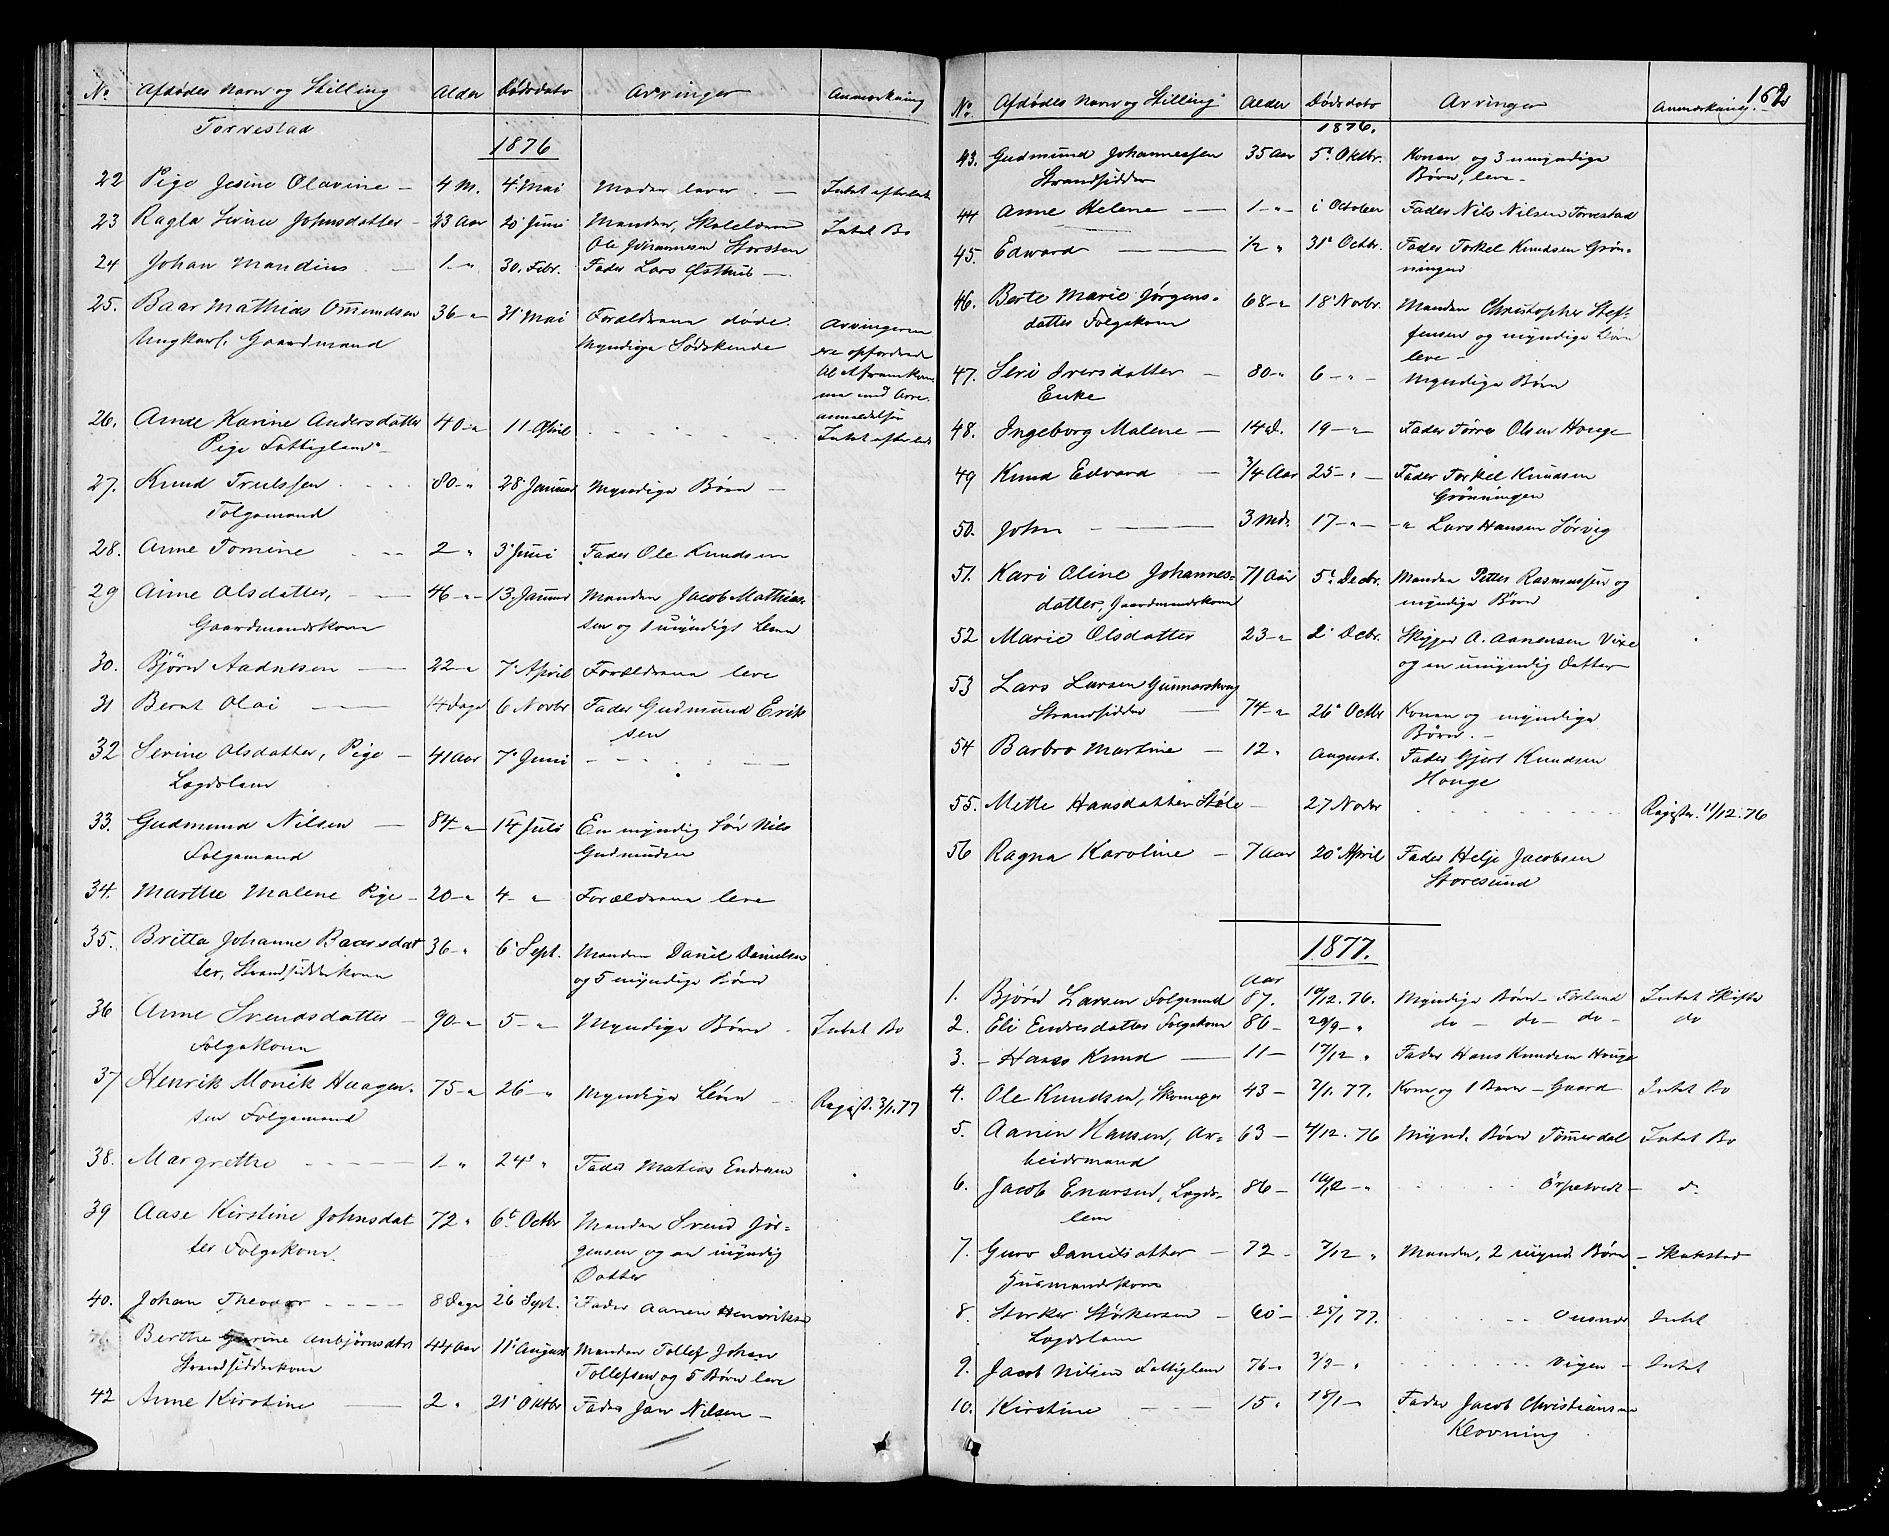 No Afdødes Navn og Stilling Alder Dødsdato Arvinger Anmærkning
Torvestad
1876
22 Pige Jesine Olavine – 4 M. 4 Mai Moder lever. – Intet efterladt
23 Ragla Serine Johnsdatter – 23 Aar 20 Juni Manden, Skolelærer Intet Bo
Ole Johannesen Storsten
24 Johan Mandius – 1 – " 30. Febr. Fader Lars Østhus –
25. Baar Mathias Omundsen 36 – " 31 Mai Forældrene døde. Arvingerne
Ungkarl, Gaardmand Myndige Sødskende ere opfordrede
at fremkom-
me med Arve-
anmeldelse
26. Anne Karine Andersdatter 40 – " 11 April Intet efterladt
Pige Fattiglem –
27. Knud Trulssen 80 – " 28 Januar Myndige Børn –
Folgemand
28. Anne Tomine 2 " 3 Juni Fader Ole Knudsen
29 Anne Olsdatter, – 46 – " 13. Januar Manden Jacob Mathias-
Gaardmandskone sen og 1 umyndigt Barn
30. Bjørn Aadnesen – 22 – " 7 April Forældrene leve
31 Bernt Olai – 14 Dage 6 Novbr Fader Gudmund Erik
sen
32 Serine Olsdatter, Pige – 41 Aar 7 Juni – – –
Lægdslem
33. Gudmund Nilsen – 84 – " 14 Juli En myndig Søn Nils
Folgemand Gudmundsen
34. Marthe Malene Pige – 20 – " 4 – " Forældrene leve
35. Britta Johanne Baarsdat 36 – " 6 Sept. Manden Daniel Danielsen
ter, Strandsidderkone og 5 myndige Børn
36 Anne Svendsdatter – 90 – " 5 – " Myndige Børn – Intet Bo
Folgekone
37 Henrik Monik Haagen- 75 – " 26 " Myndige Børn – Regist. 3/1.77
sen Folgemand
38. Margrethe – – – 1 – " 24 " Fader Matias Endresen
39 Aase Kirstine Johnsdat 72 " 6t Octbr Manden Svend Jør-
ter Folgekone gensen og en myndig
Datter
40. Johan Theodor – – – 8 Dage 26 Sept. Fader Aanen Henriksen
Berthe Gurine Anbjørnsdatr 44 Aar 11 August Manden Tollef Johan
Strandsidderkone Tollefsen og 5 Børn leve
42 Anne Kirstine – 2 " 21 Oktbr Fader Jan Nilsen –
No. Afdødes Navn og Stilling Alder Dødsdato Arvinger Anmærkning. 162
1876.
43. Gudmund Johannessen 35 Aar 5t Oktbr. Konen og 3 umyndige
Strandsidder Børn, leve –
44 Anne Helene – 1 – " i October Fader Nils Nilsen Torvestad
45. Edward – 1/2 " 31 Octbr. Fader Torkel Knudsen Grøn-
ningen
46. Berte Marie Jørgens- 68 – " 18 Novbr. Manden Christopher Stef-
datter Folgekone fensen og myndige Børn
leve –
47. Seri Iversdatter – 80 – " 6 – " – Myndige Børn
Enke
48. Ingeborg Malene – 14 D. 19 – " Fader Tørres Olsen Houge
49 Knud Edvard – 3/4 Aar 25 – " – Fader Torkel Knudsen
Grønningen
50. John – – – 3 Mdr. 17 – " – " Lars Hansen Sørvig
51. Kari Oline Johannes- 71 Aar 5t Decbr. Manden Petter Rasmussen og
datter, Gaardmandskone myndige Børn
52 Marie Olsdatter 23 – " 2 Decbr. Skipper A. Aanensen Vixe
og en umyndig Datter –
53 Lars Larsen Gunnarshaug
Strandsidder – 74 – " 26 Octbr Konen og myndige
Børn. –
54 Barbro Martine – 12 " August. Fader Gjert Knudsen
Houge
55. Mette Hansdatter Støle – 27 Novbr Registr. 11/12.76
56 Ragna Karoline – 7 Aar 20 April Fader Helje Jacobsen
Storesund
1877.
Aar
1. Bjørn Larsen Folgemand 87. 10/12.76. Myndige Børn – Førland Intet Skifte
2. Eli Endresdatter Folgekone 86 – 29/9 – " do – do – do – do
3. – Hans Knud – 11 – 17/12 " Fader Hans Knudsen Houge
4. Ole Knudsen, Skomager 43 – 3/1. 77. Kone og 1 Barn – Gaard Intet Bo
5. Aanen Hansen, Ar- 63 – 4/12. 76 Mynd. Børn Tømerdal Intet Bo
beidsmand
6. Jacob Enarsen, Lægds- 86 – 10/12 – " Ørpetvedt – do
lem
7. Guro Danielsdatter – 72 – 7/12 " Manden, 2 mynd. Børn – Skakstad
Husmandskone
8. Storker Størkersen – 60 – 25/1 77. Intet
Lægdslem
9. Jacob Nilsen Fattiglem 76 – 3/3 – " Vigen – Intet
10. Kirstine – – – 15 " 18/1 – Fader Jacob Christiansen
Klovning